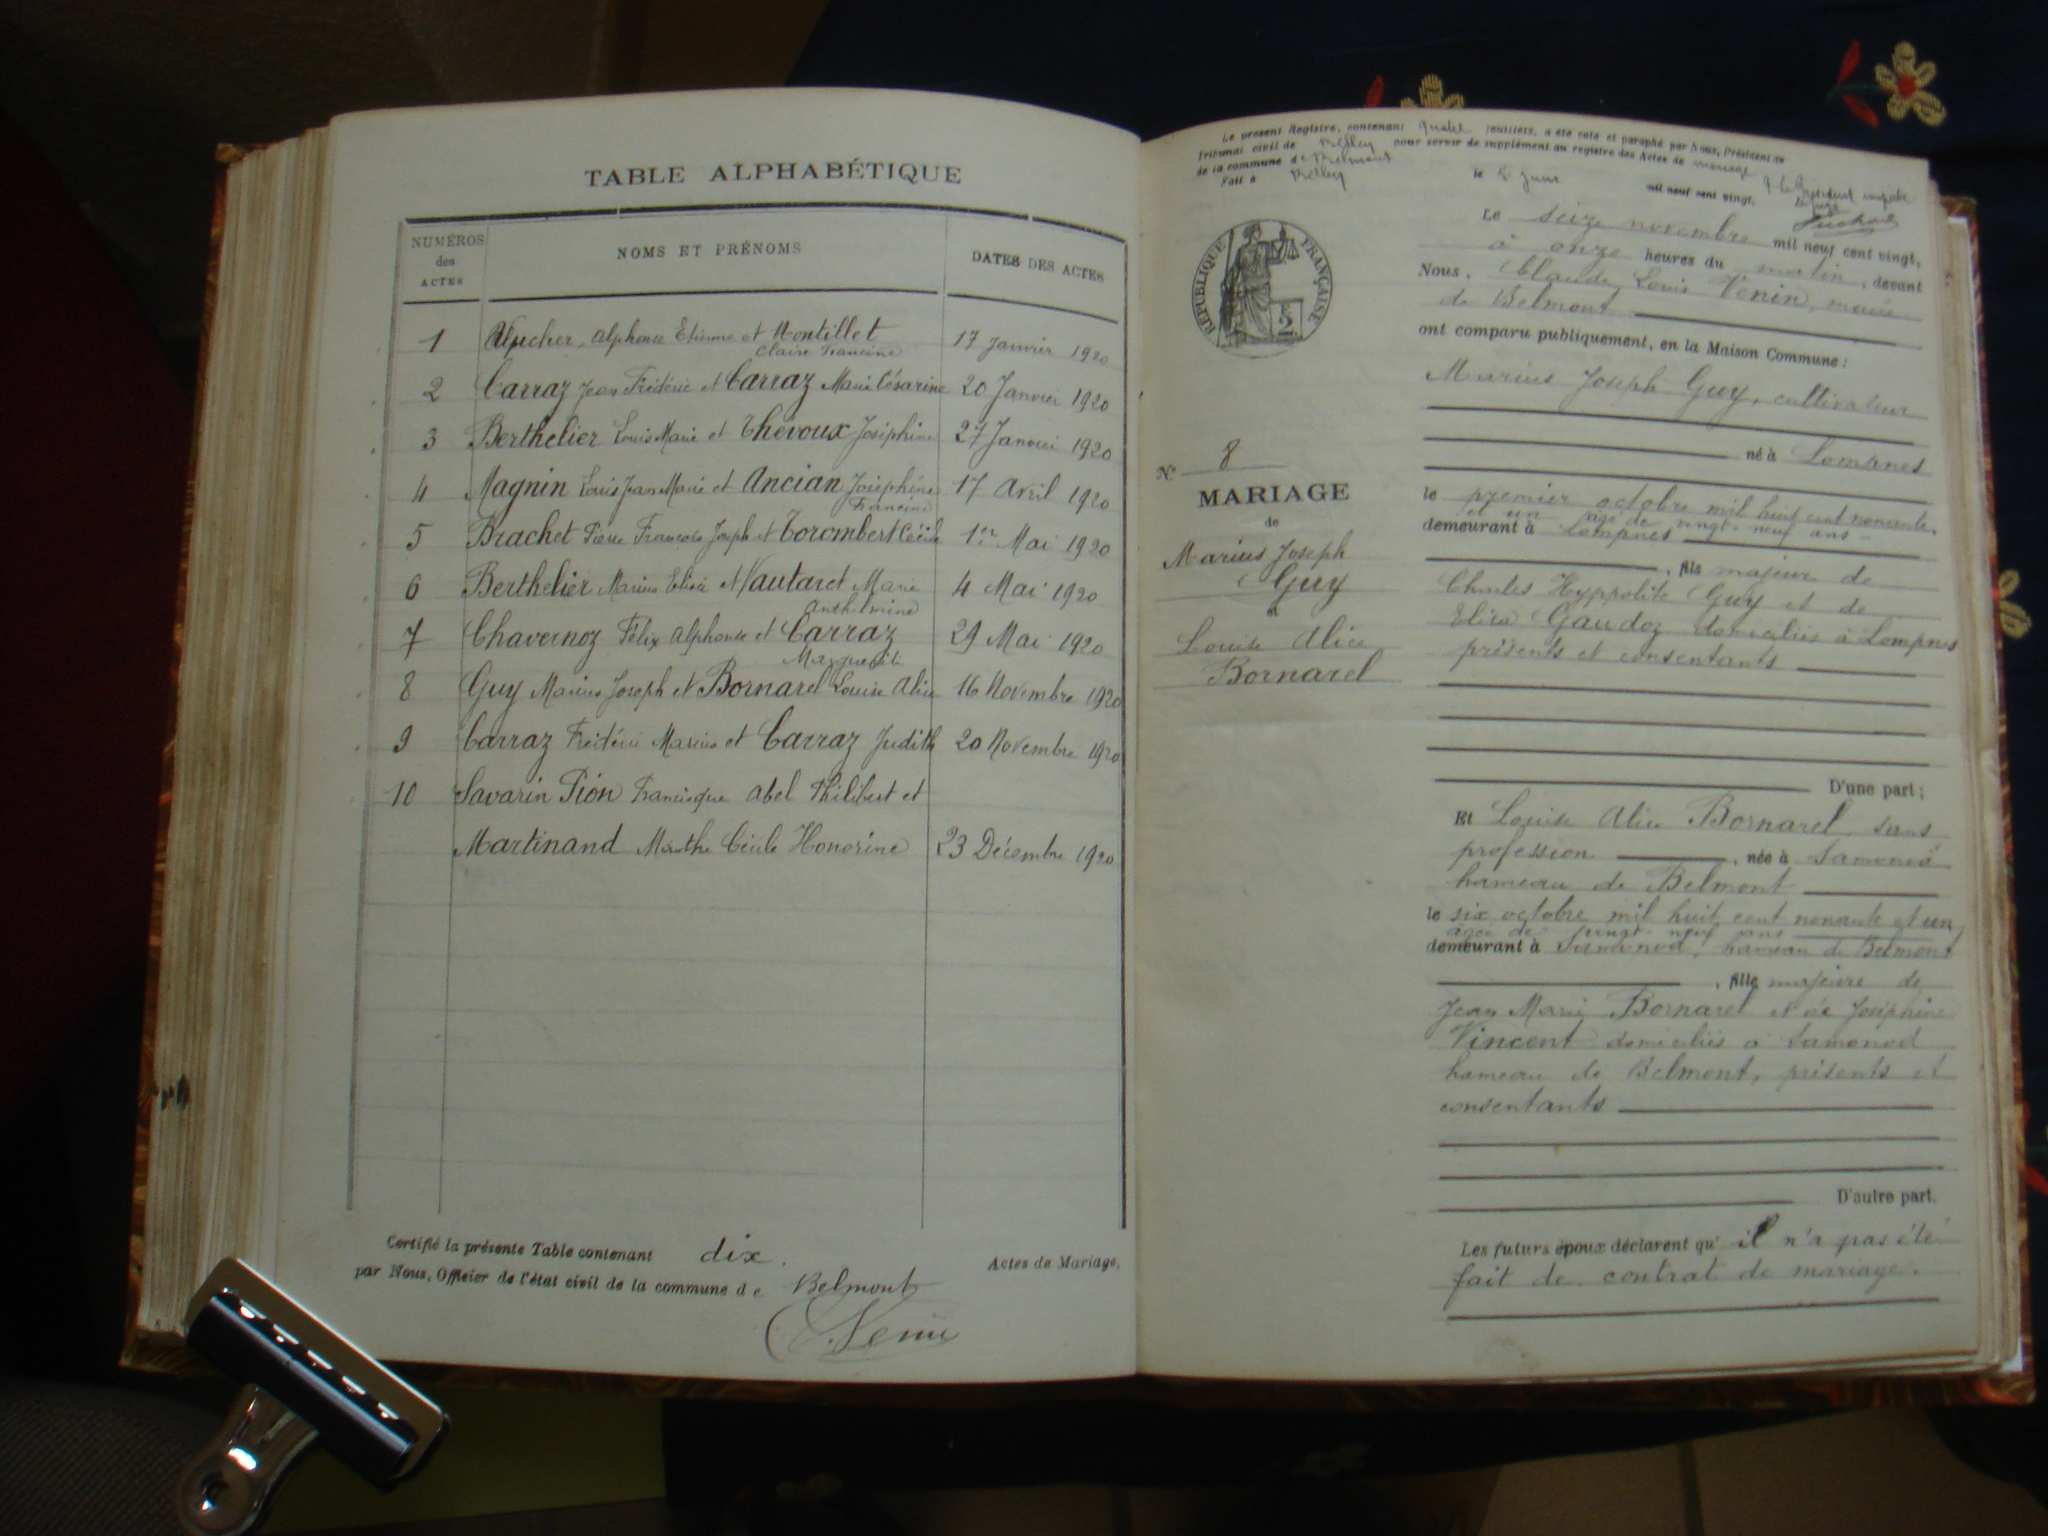 TABLE ALPHABÉTIQUE
NUMÉROS des ACTES
NOMS ET PRÉNOMS
DATES DES ACTES
1 Alphonse Etienne et Montillet 17 Janvier 1920
Claire Francine
2 Carraz Jean Frédéric et Carraz Marie Césarine 20 Janvier 1920
3 Berthelier Louis Marie et Thévoux Joséphine 27 Janvier 1920
4 Magnin Louis Jean Marie et Ancian Joséphine 17 Avril 1920
Francine
5 Brachet Pierre François Joseph et Torombert Cécile 1er Mai 1920
6 Berthelier Marius Elisée et Vautaret Marie 4 Mai 1920
Anthelmine
7 Chavernoz Félix Alphonse et Carraz 29 Mai 1920
Marguerite
8 Guy Marius Joseph et Bornarel Louise Alice 16 Novembre 1920
9 Carraz Frédéric Marius et Carraz Judith 20 Novembre 1920
10 Savarin Pion Francisque Abel Philibert et
Martinand Marthe Cécile Honorine 23 Décembre 1920
Certifié la présente Table contenant dix. Actes de Mariage,
par Nous, Officier de l'état civil de la commune de Belmont
Venin
Le présent Registre, contenant quatre feuillets, a été coté et paraphé par Nous, Président du
Tribunal civil de Belley pour servir de supplément au registre des Actes de mariage
de la commune de Belmont
Fait à Belley le 5 Juin mil neuf cent vingt.
RÉPUBLIQUE FRANÇAISE
2
Le seize novembre mil neuf cent vingt,
à onze heures du matin, devant
Nous, Claude Louis Venin, maire
de Belmont
ont comparu publiquement, en la Maison Commune:
Marius Joseph Guy, cultivateur
né à Lompnes
le premier octobre mil huit cent nonante
et un âgé de vingt-neuf ans
demeurant à Lompnes
, fils majeur de
Charles Hyppolite Guy et de
Elisa Gaudoz domiciliés à Lompnes
présents et consentants
D'une part;
N° 8
MARIAGE
de
Marius Joseph
Guy
et
Louise Alice
Bornarel
Et Louise Alice Bornarel, sans
profession, née à Samonod
hameau de Belmont
le six octobre mil huit cent nonante et un,
âgée de vingt-neuf ans
demeurant à Samonod, hameau de Belmont
, fille majeure de
Jean Marie Bornarel et de Joséphine
Vincent domiciliés à Samonod
hameau de Belmont, présents et
consentants
D'autre part.
Les futurs époux déclarent qu'il n'a pas été
fait de contrat de mariage.